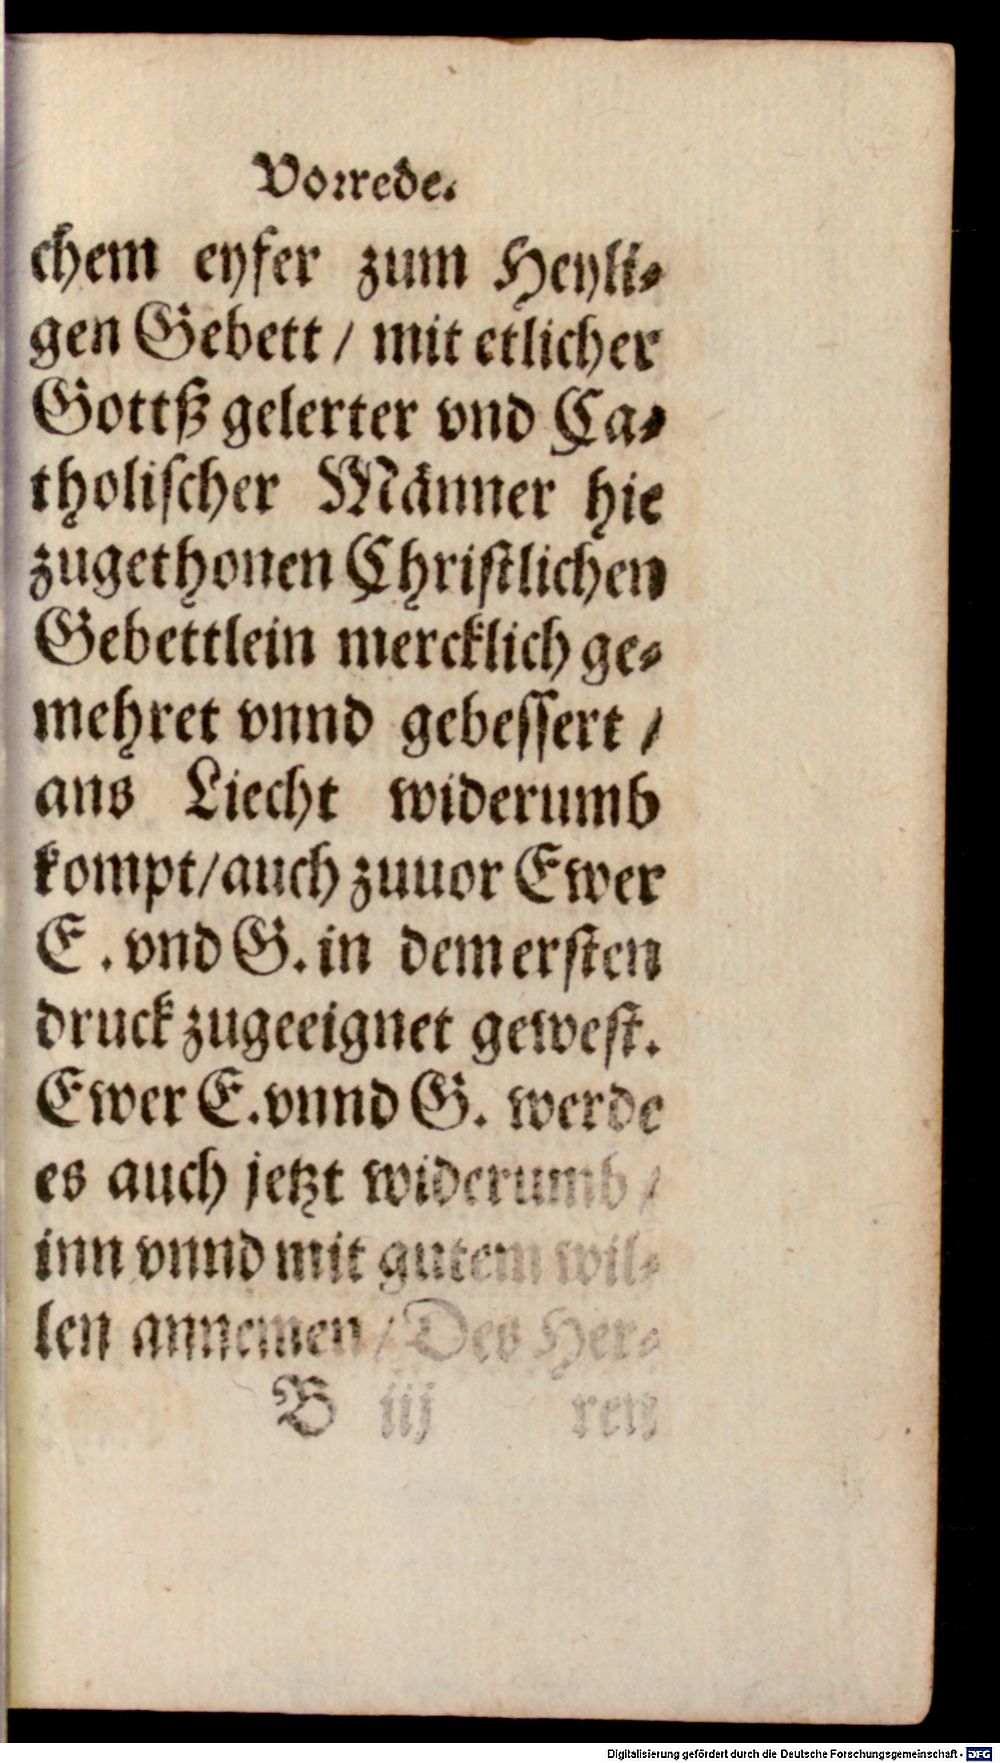 Vorrede.
chem eyfer zum Heyli-
gen Gebett / mit etlicher
Gottß gelerter vnd Ca-
tholischer Männer hie
zugethonen Christlichen
Gebettlein mercklich ge-
mehret vnnd gebessert /
ans Liecht widerumb
kompt / auch zuuor Ewer
E. vnd G. in dem ersten
druck zugeeignet gewest.
Ewer E. vnnd G. werde
es auch jetzt widerumb /
inn vnnd mit gutem wil-
len annemen / Des Her-
B iij ren
Digitalisierung gefördert durch die Deutsche Forschungsgemeinschaft - DFG